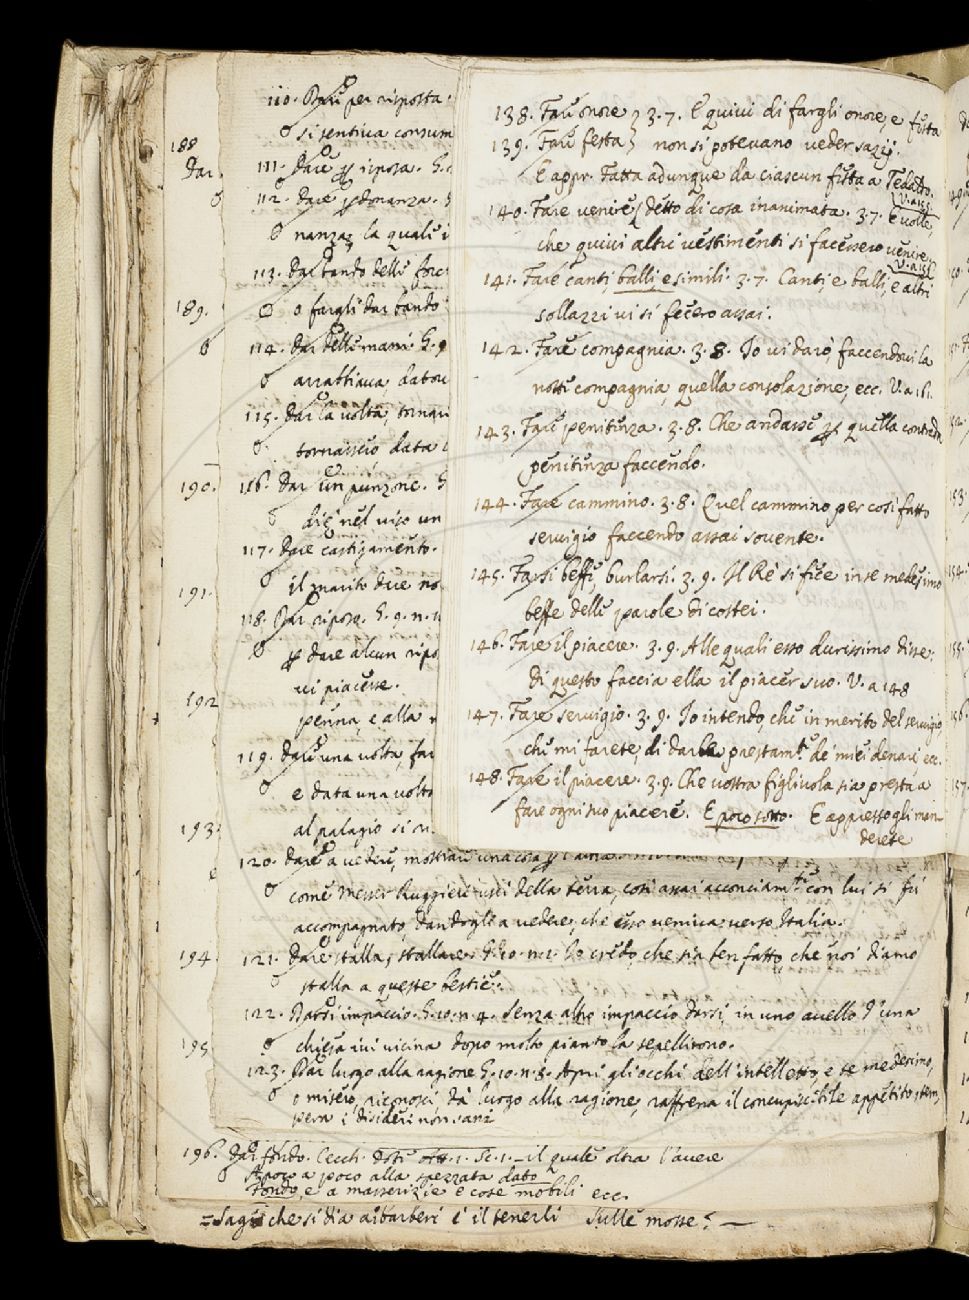 138. Fare onore } 3.7. E quivi di fargli onore, e festa
139. Fare festa } non si potevano veder sazij.
E appr. Fatta adunque da ciascun festa a Tedaldo.
V. a 155.
140. Fare venire, detto di cosa inanimata. 3.7. E volle,
che quivi altri vestimenti si facessero venire.
141. Fare canti, balli, e simili. 3.7. Canti, e balli, e altri
sollazzi vi si fecero assai.
142. Fare compagnia. 3.8. Io vi darò, faccendovi la
notte compagnia, quella consolazione, ecc. V. a 161.
143. Fare penitenza. 3.8. Che andasse per quella contrada
penitenza faccendo.
144. Fare cammino. 3.8. Quel cammino per così fatto
servigio faccendo assai sovente.
145. Farsi beffe, burlarsi. 3.9. Il Re si fece in se medesimo
beffe delle parole di costei.
146. Fare il piacere. 3.9. Alle quali esso durissimo disse:
di questo faccia ella il piacer suo. V. a 148
147. Fare servigio. 3.9. Io intendo, che in merito del servigio,
che mi farete, di darle prestam.te de' miei denari, ecc.
148. Fare il piacere. 3.9. Che vostra figlivola sia presta a
fare ogni suo piacere. E poco sotto. E appresso gli man-
derete
110. Dare per risposta
si sentiva consum
188
Dar.
111. Dare per risposta.
112. Dare perdonanza.
nanza, la quale
113. Dar bando delle forc
189.
o fargli dar bando
114. Dar delle mani.
arrabbiava dato
115. Dar la volta, tornar
tornassero data
190.
116. Dar un punzone.
diè nel viso un
117. Dare castigamento.
191.
il marito dee
118. Dar riposo. G. 9. n.
per dare alcun ripo
vi piacesse.
192
penna, e alla
119. Dare una volta, far
e data una volta
193.
al palagio si
120. Dare a vedere, mostrare una cosa per l'altra
come Messer Ruggieri uscì della terra, così assai acconciam.te con lui si fu
accompagnato, dandogli a vedere, che esso veniva verso Italia.
194.
121. Dare stalla, stallare. G. 10. n. 2. Io credo, che sia ben fatto, che noi diamo
stalla a queste bestie.
122. Darsi impaccio. G. 10. n. 4. Senza altro impaccio darsi, in uno avello d'una
195
chiesa ivi vicina dopo molto pianto la sepellirono.
123. Dar luogo alla ragione G. 10. n. 8. Apri gli occhi dell'intelletto, e te medesimo,
o misero, riconosci, dà luogo alla ragione, raffrena il concupiscibile appetito, tem-
pera i disideri non sani
196. Dar fondo. Cecch. Dote att. 1. Sc. 1. – il quale oltra l'avere
A poco a poco alla spezzata dato
Fondo, e a masserizie e cose mobili ecc.
= Sagù che si dia a' barberi è il tenerli Sulle mosse? —